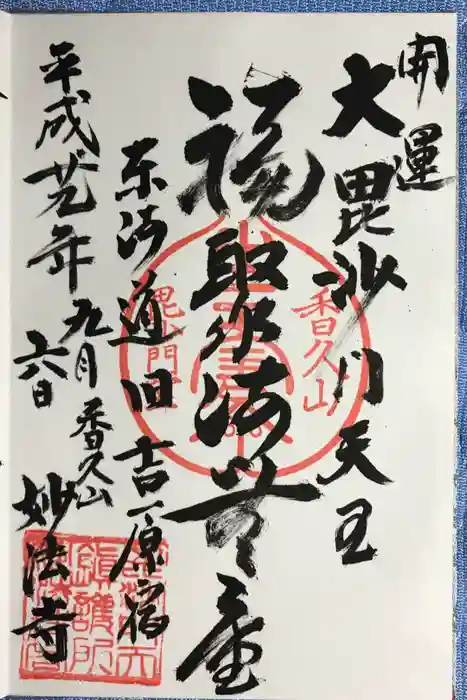 開運
大毘沙門天王
福聚海無量
香久山
東海道旧吉原宿
香久山
妙法寺
平成廿九年九月
六日